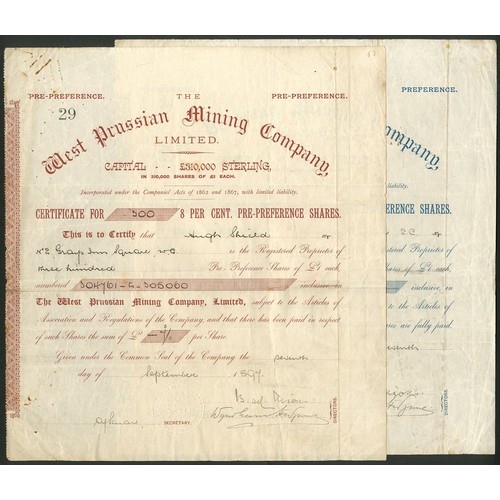 PRE-PREFERENCE. THE PRE-PREFERENCE.
29
West Prussian Mining Company,
LIMITED.
CAPITAL - - £310,000 STERLING,
IN 310,000 SHARES OF £1 EACH.
Incorporated under the Companies' Acts of 1862 and 1867, with limited liability.
CERTIFICATE FOR 300 8 PER CENT. PRE-PREFERENCE SHARES.
This is to Certify that Hugh Shield
Square W.C. is the Registered Proprietor of
three hundred Pre-Preference Shares of £1 each,
numbered 304761 to 305060 inclusive in
The West Prussian Mining Company, Limited, subject to the Articles of
Association and Regulations of the Company, and that there has been paid in respect
of such Shares the sum of £ per Share
Given under the Common Seal of the Company the seventh
day of September 1897.
SECRETARY.
DIRECTORS.
PREFERENCE.
ompany,
liability.
ERENCE SHARES.
Registered Proprietor of
of £1 each,
inclusive, in
to the Articles of
Shares are fully paid.
seventh
DIRECTORS.